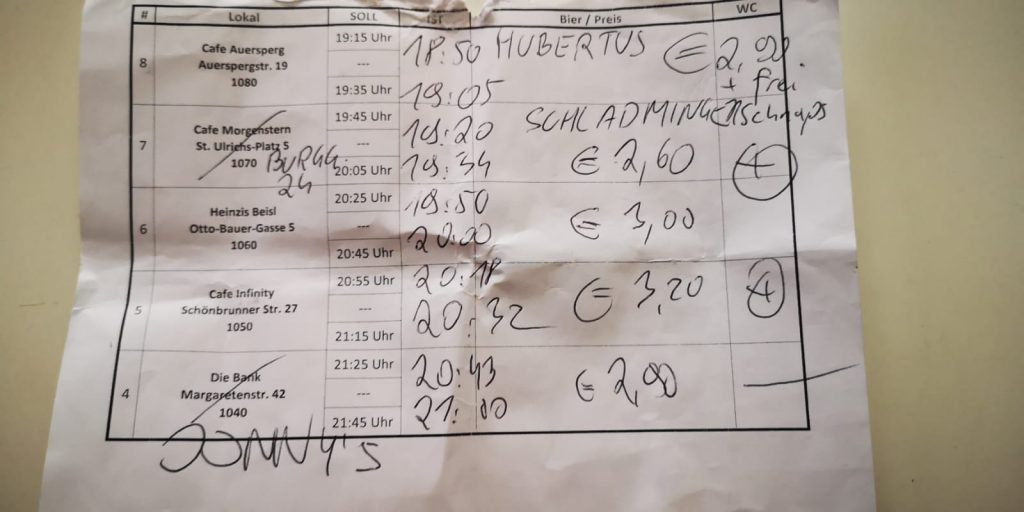 # Lokal SOLL IST Bier / Preis WC
8 Cafe Auersperg
Auerspergstr. 19
1080
19:15 Uhr
---
19:35 Uhr
18:50
19:05
HUBERTUS € 2,90
+ frei
Schnaps
7 Cafe Morgenstern
St. Ulrichs-Platz 5
1070
BURGG.
24
19:45 Uhr
---
20:05 Uhr
19:20
19:34
SCHLADMINGER
€ 2,60 +
6 Heinzis Beisl
Otto-Bauer-Gasse 5
1060
20:25 Uhr
---
20:45 Uhr
19:50
20:00
€ 3,00
5 Cafe Infinity
Schönbrunner Str. 27
1050
20:55 Uhr
---
21:15 Uhr
20:18
20:32
€ 3,20 +
4 Die Bank
Margaretenstr. 42
1040
21:25 Uhr
---
21:45 Uhr
20:43
21:00
€ 2,90 —
JONNY'S